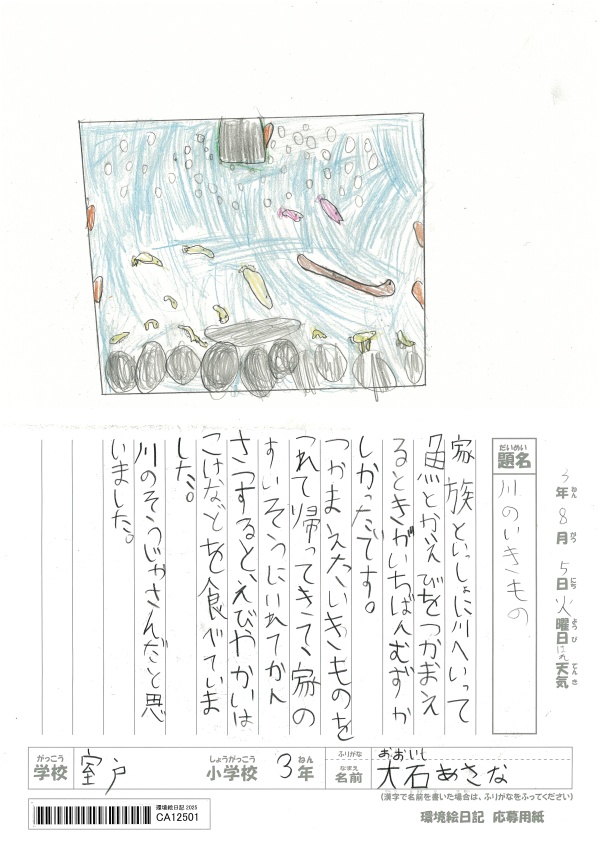 3年8月5日火曜日はれ天気
ねん がつ にち ようび てんき
だいめい
題名 川のいきもの
家族といっしょに川へいって
魚とかえびをつかまえ
るときがいちばんむずか
しかったです。
つかまえた、いきものを
つれて帰ってきて、家の
すいそうにいれてかん
さつすると、えびやかいは
こけなどを食べていま
した。
川のそうじやさんだと思
いました。
がっこう しょうがっこう ねん ふりがな おおいし
学校 室戸 小学校 3年 なまえ 名前 大石あさな
(漢字で名前を書いた場合は、ふりがなをふってください)
環境絵日記 2025
CA12501
環境絵日記 応募用紙